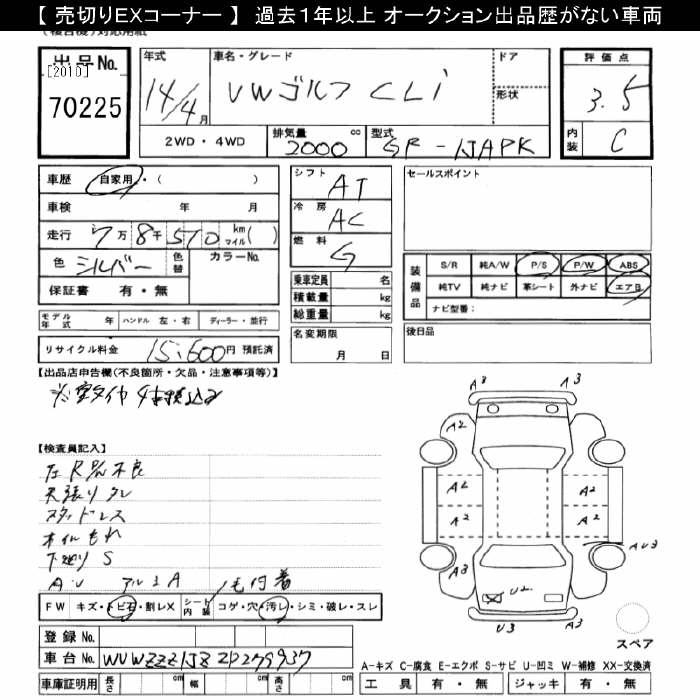 【 売切りEXコーナー 】 過去1年以上 オークション出品歴がない車両
出品No.
[2010]
70225
年式
14/4月
車名・グレード
VWゴルフ CLi
ドア
形状
2WD・4WD
排気量 2000 cc
型式 GF-1JAPK
評価点
3.5
内装 C
車歴 自家用・( )
車検 年 月
走行 7万8千510 km マイル( )
色 シルバー 色替 カラーNo.
保証書 有・無
モデル年式 年 ハンドル 左・右 ディーラー・並行
リサイクル料金 15,600円 預託済
シフト AT
冷房 AC
燃料 G
乗車定員 名
積載量 kg
総重量 kg
名変期限
月 日
セールスポイント
装備品
S/R 純A/W P/S P/W ABS
純TV 純ナビ 革シート 外ナビ エアB
ナビ型番:
後日品
【出品店申告欄(不良箇所・欠品・注意事項等)】
【検査員記入】
左
不良
天張りタレ
スタッドレス
オイルもれ
下廻りS
A・U アルミA
毛付着
FW キズ・トビ石・割レX シート内装 コゲ・穴・汚レ・シミ・破レ・スレ
登録No.
車台No. WVWZZZ1JZ2D279937
車庫証明用 長さ cm 幅 cm 高さ cm
A3 A3
A2
A2 A2
A2 A2
A3 AU3
U2
U3 A3
スペア
A-キズ C-腐食 E-エクボ S-サビ U-凹ミ W-補修 XX-交換済
工具 有・無 ジャッキ 有・無